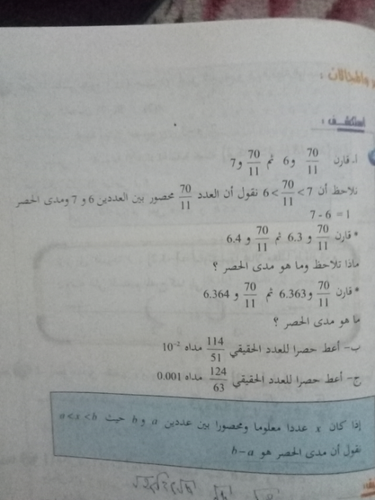 والمجالات :
أستكشف :
أ- قارن 70/11 و 6 ثم 70/11 و 7
تلاحظ أن 6 < 70/11 < 7 نقول أن العدد 70/11 محصور بين العددين 6 و 7 ومدى الحصر
7 - 6 = 1
* قارن 70/11 و 6.3 ثم 70/11 و 6.4
ماذا تلاحظ وما هو مدى الحصر ؟
* قارن 70/11 و 6.363 ثم 70/11 و 6.364
ما هو مدى الحصر ؟
ب- أعط حصرا للعدد الحقيقي 114/51 مداه 10⁻²
ج- أعط حصرا للعدد الحقيقي 124/63 مداه 0.001
إذا كان x عددا معلوما ومحصورا بين عددين a و b حيث a<x<b
نقول أن مدى الحصر هو b-a